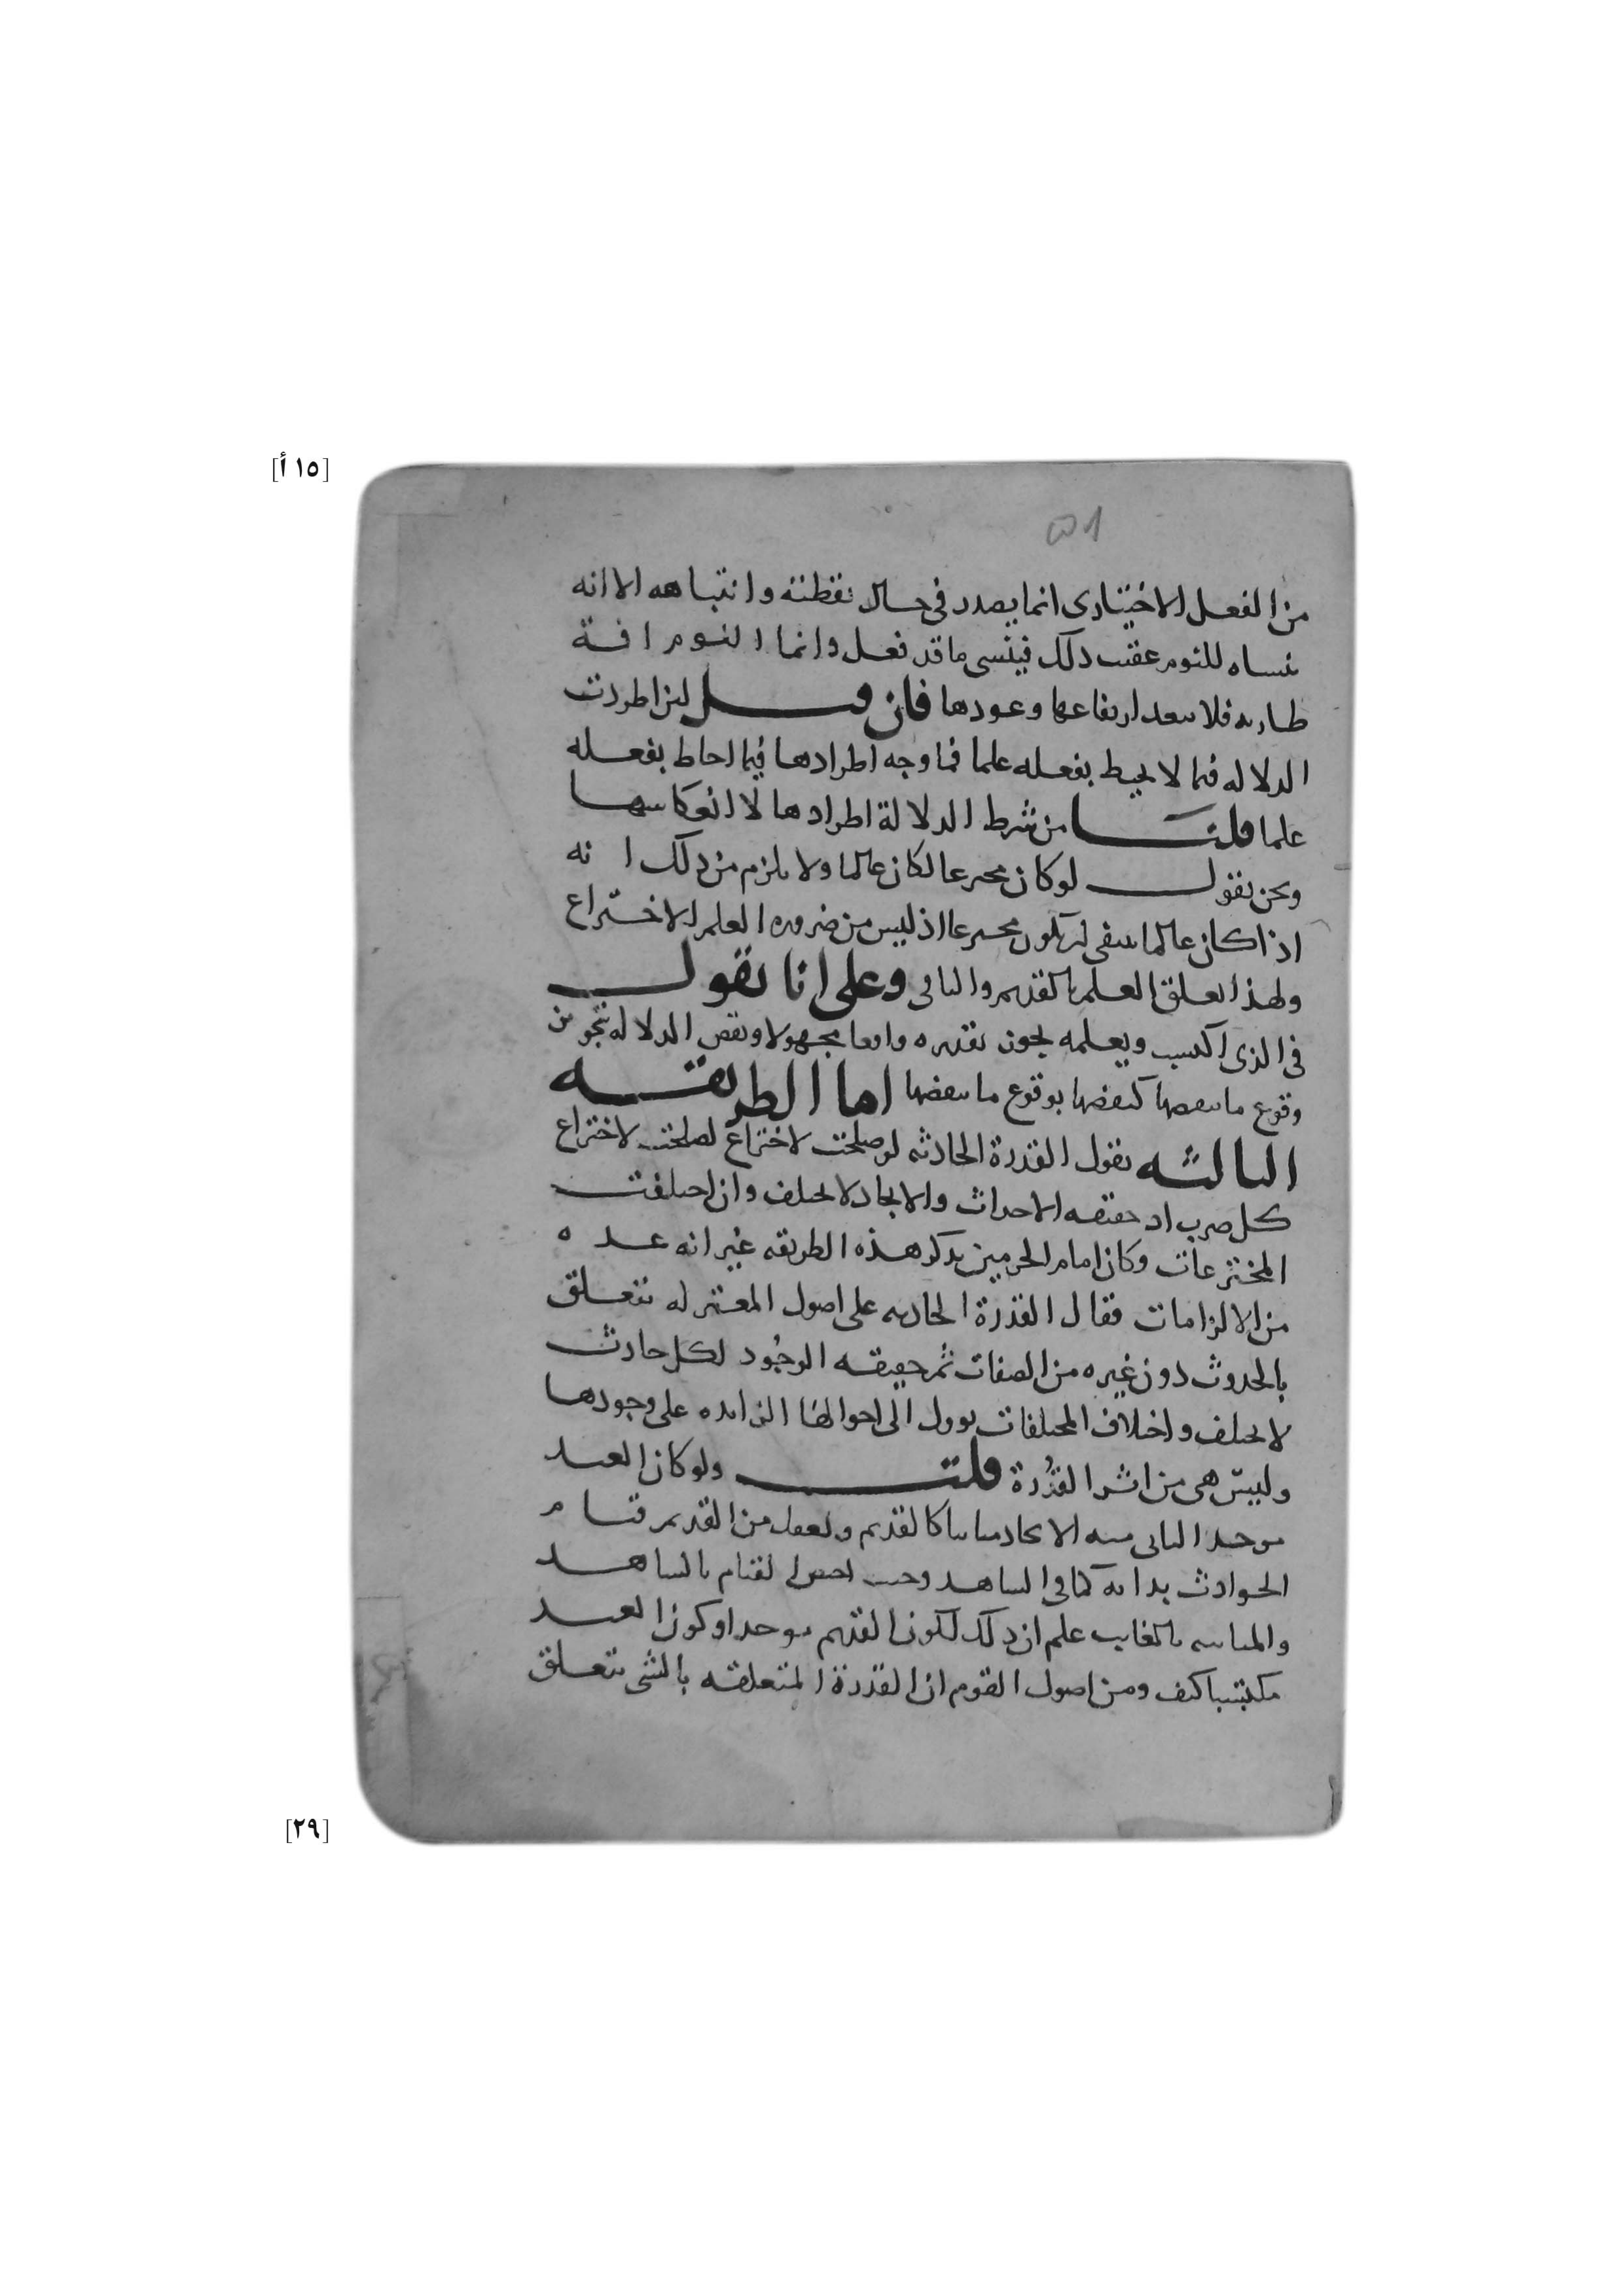 [١٥ أ]
من الفعل الاختيارى انما يصدر فى حال يقظته وانتباهه الا انه
نساه للنوم عقيب ذلك فينسى ما قد فعل وانما النوم افة
طاريه فلا يبعد ارتفاعها وعودها فان قيل لئن اطردت
الدلاله فيما لا يحيط بفعله علما فما وجه اطرادها فيما احاط بفعله
علما قلنا من شرط الدلالة اطرادها لا انعكاسها
ونحن نقول لو كان مخترعا لكان عالما ولا يلزم من ذلك انه
اذا كان عالما ان يكون مخترعا اذ ليس من ضروره العلم الاختراع
ولهذا تعلق العلم بالقديم والباقى وعلى انا نقول
فى الذى اكتسب ويعلمه يجوز تقديره واقعا مجهولا ونقض الدلاله بتجويز
وقوع ما ينقضها كنقضها بوقوع ما ينقضها اما الطريقه
الثالثه نقول القدرة الحادثه لو صلحت لاختراع لصلحت لاختراع
كل ضرب اذ حقيقه الاحداث والايجاد لا تختلف وان اختلفت
المخترعات وكان امام الحرمين يذكر هذه الطريقه غير انه عده
من الالزامات فقال القدرة الحادثه على اصول المعتزله تتعلق
بالحدوث دون غيره من الصفات ثم حقيقه الوجود لكل حادث
لا تختلف واختلاف المختلفات يوول الى احوالها الزايده على وجودها
وليس هى من اثر القدرة قلت ولو كان العبد
موجدا كالقديم من القديم قيام
الحوادث بذاته كما فى الشاهد القيام بالشاهد
بالغايب علم ان ذلك لكون القديم موجدا وكون العبد
مكتسبا كيف ومن اصول القوم ان القدرة المتعلقه بالشى تتعلق
[٢٩]